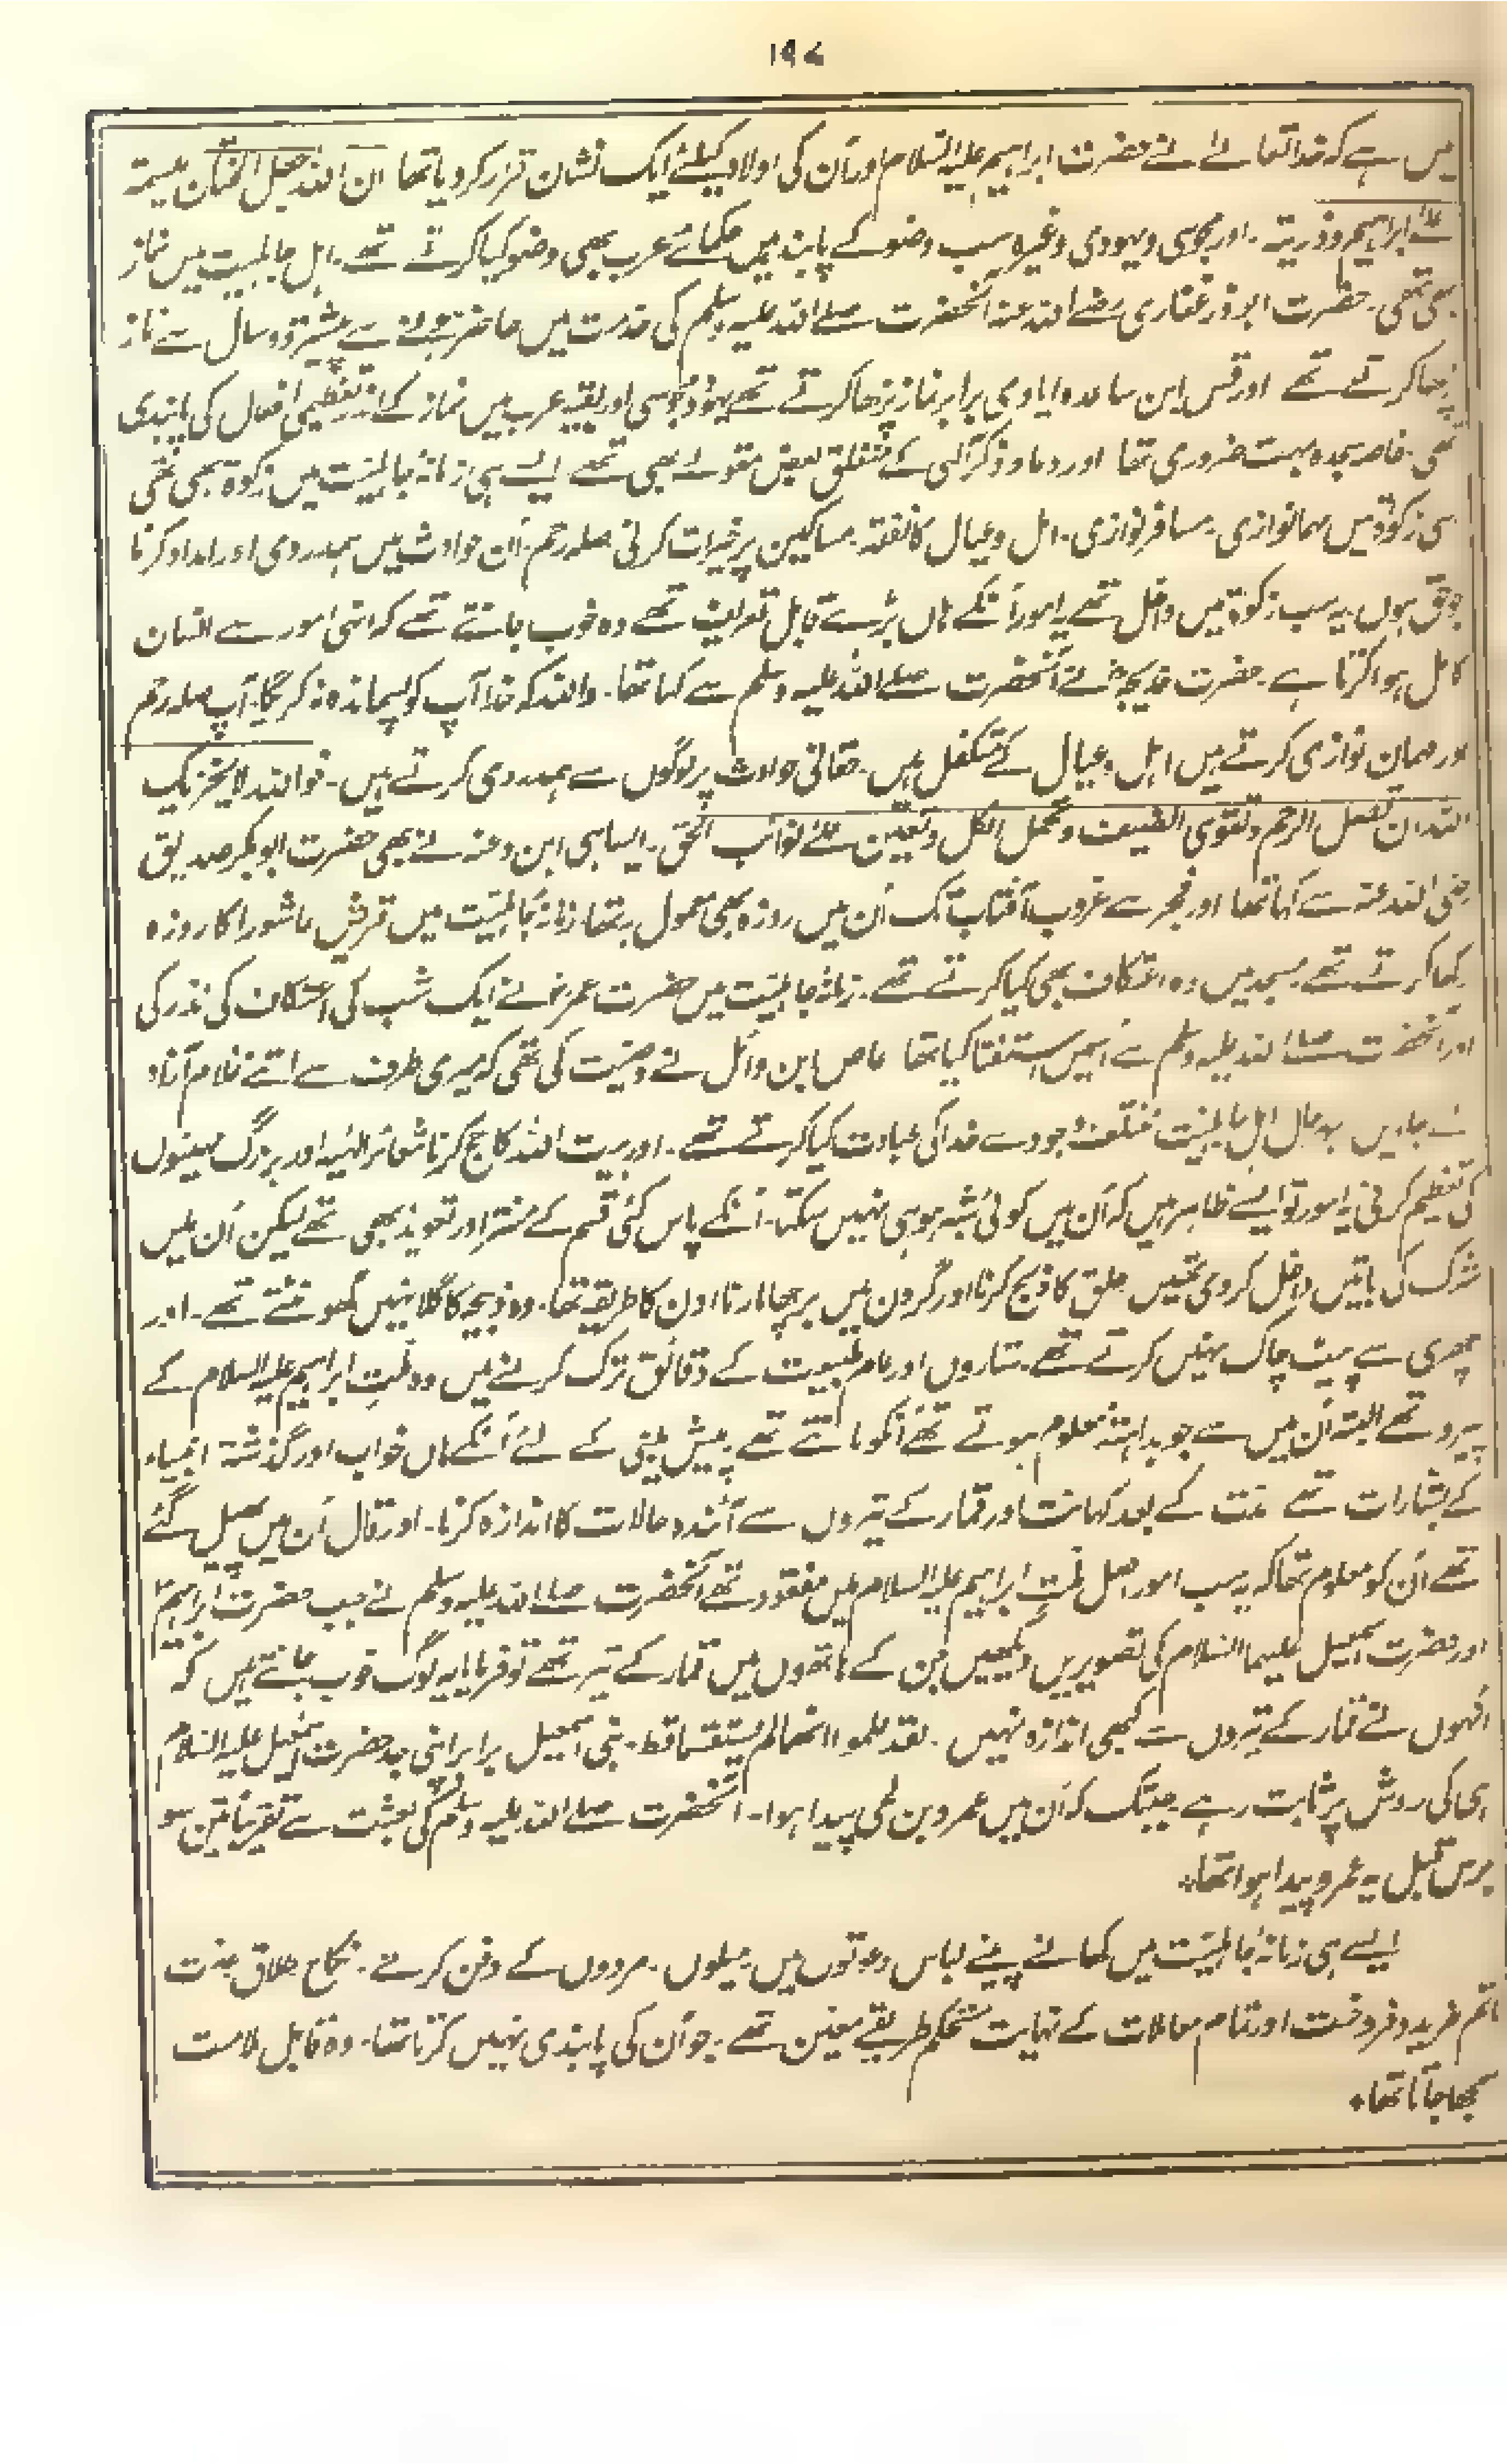 ۱۹۷
میں ہے کہ خدا تعالے نے حضرت ابراہیم علیہ السلام اور اُن کی اولاد کیلئے ایک نشان قرار کر دیا تھا ان اللہ جعل الختان میسمۃ
علےٰ ابراہیم وذریتہ ۔ اور مجوسی ویہودی وغیرہ سب وضو کے پابند ہیں حکمائے عرب بھی وضو کیا کرتے تھے ۔ اہل جاہلیت میں نماز
بھی تھی ۔ حضرت ابوذر غفاری رضے اللہ عنہ آنحضرت صلے اللہ علیہ وسلم کی خدمت میں حاضر ہونے سے پیشتر دو سال سے نماز
پڑھا کرتے تھے اور قس ابن ساعدہ ایادی برابر نماز پڑھا کرتے تھے یہود مجوسی اور بقیہ عرب میں نماز کے اندر تعظیمی افعال کی پابندی
تھی ۔ خاصر سجدہ بہت ضروری تھا اور دعا و ذکر آلہی کے متعلق بعض مقولے بھی تھے ایسے ہی زمانۂ جاہلیّت میں زکوۃ بھی تھی
سی زکوٰۃ میں مہمانوازی ۔ مسافر نوازی ۔ اہل وعیال کا نفقہ ۔ مساکین پر خیرات کرنی صلہ رحم ۔ اُن حوادث میں ہمدردی اور امداد کرنا
جو حق ہوں ۔ یہ سب زکوٰۃ میں داخل تھے یہ امور اُنکے ہاں بڑے قابل تعریف تھے وہ خوب جانتے تھے کہ انہی امور سے انسان
کامل ہوا کرتا ہے ۔ حضرت خدیجہ رض نے آنحضرت صلے اللہ علیہ وسلم سے کہا تھا ۔ واللہ کہ خدا آپ کو پسماندہ نہ کریگا ۔ آپ صلہ رحم
اور مہمان نوازی کرتے ہیں اہل وعیال کے متکفل ہیں ۔ حقانی حوادث پر لوگوں سے ہمدردی کرتے ہیں ۔ فواللہ لایخزیک
اللہ ان تصل الرحم وتقوی الضیف وتحمل الکل وتعین علےٰ نوائب الحق ۔ ایسا ہی ابن دغنہ نے بھی حضرت ابوبکر صدیق
رضی اللہ عنہ سے کہا تھا اور فجر سے غروب آفتاب تک اُن میں روزہ بھی معمول بہ تھا زمانۂ جاہلیّت میں قریش عاشورا کا روزہ
رکھا کرتے تھے مسجد میں وہ اعتکاف بھی کیا کرتے تھے ۔ زمانۂ جاہلیّت میں حضرت عمر رض نے ایک شب کی اعتکاف کی نذر کی
اور آنحضرت صلے اللہ علیہ وسلم سے اسمیں استفتا کیا تھا عاص ابن وائل نے وصیّت کی تھی کہ میری طرف سے اتنے غلام آزاد
کئے جاویں بہر حال اہل جاہلیّت مختلف وجوہ سے خدا کی عبادت کیا کرتے تھے ۔ اور بیت اللہ کا حج کرنا شعائر الٰہیہ اور بزرگ مہینوں
کی تعظیم کرنی یہ امور تو ایسے ظاہر ہیں کہ اُن میں کوئی شبہ ہو ہی نہیں سکتا ۔ اُنکے پاس کئی قسم کے منتر اور تعویذ بھی تھے لیکن اُن میں
شرک کی باتیں داخل کر دی تھیں حلق کا ذبح کرنا اور گردن میں برچھا مارنا اون کا طریقہ تھا ۔ وہ ذبیحہ کا گلا نہیں گھونٹتے تھے ۔ اور
چھری سے پیٹ چاک نہیں کرتے تھے ستاروں اور عام طبیعت کے دقائق ترک کرنے میں وہ ملتِ ابراہیم علیہ السلام کے
پیرو تھے البتہ اُن میں سے جو بداہتہً معلوم ہوتے تھے اُنکو مانتے تھے پیش بینی کے لئے اُنکے ہاں خواب اور گذشتہ انبیاء
کے بشارات تھے مدت کے بعد کہانت اور قمار کے تیروں سے آئندہ حالات کا اندازہ کرنا ۔ اور فال اُن میں پھیل گئے
تھے اُن کو معلوم تھا کہ یہ سب امور اصل ملت ابراہیم علیہ السلام میں مفقود تھے آنحضرت صلے اللہ علیہ وسلم نے جب حضرت ابراہیم
اور حضرت اسمعیل علیہما السلام کی تصویریں دیکھیں جن کے ہاتھوں میں قمار کے تیر تھے تو فرمایا یہ لوگ خوب جانتے ہیں کہ
اُنہوں نے قمار کے تیروں سے کبھی اندازہ نہیں ۔ لقد علموا انھما لم یستقسما قط ۔ بنی اسمعیل برابر اپنی جد حضرت اسمعیل علیہ السلام
ہی کی روش پر ثابت رہے ۔ جبتک کہ اُن میں عمرو بن لحی پیدا ہوا ۔ آنحضرت صلے اللہ علیہ وسلم کی بعثت سے تقریباً تین سو
برس قبل یہ عمرو پیدا ہوا تھا ۔
ایسے ہی زمانۂ جاہلیّت میں کھانے پینے لباس دعوتوں میں میلوں ۔ مردوں کے دفن کرتے ۔ نکاح طلاق عدت
ماتم خرید و فروخت اور تمام معاملات کے نہایت مستحکم طریقے معین تھے ۔ جو اُن کی پابندی نہیں کرتا تھا ۔ وہ قابل ملامت
سمجھا جاتا تھا ۔